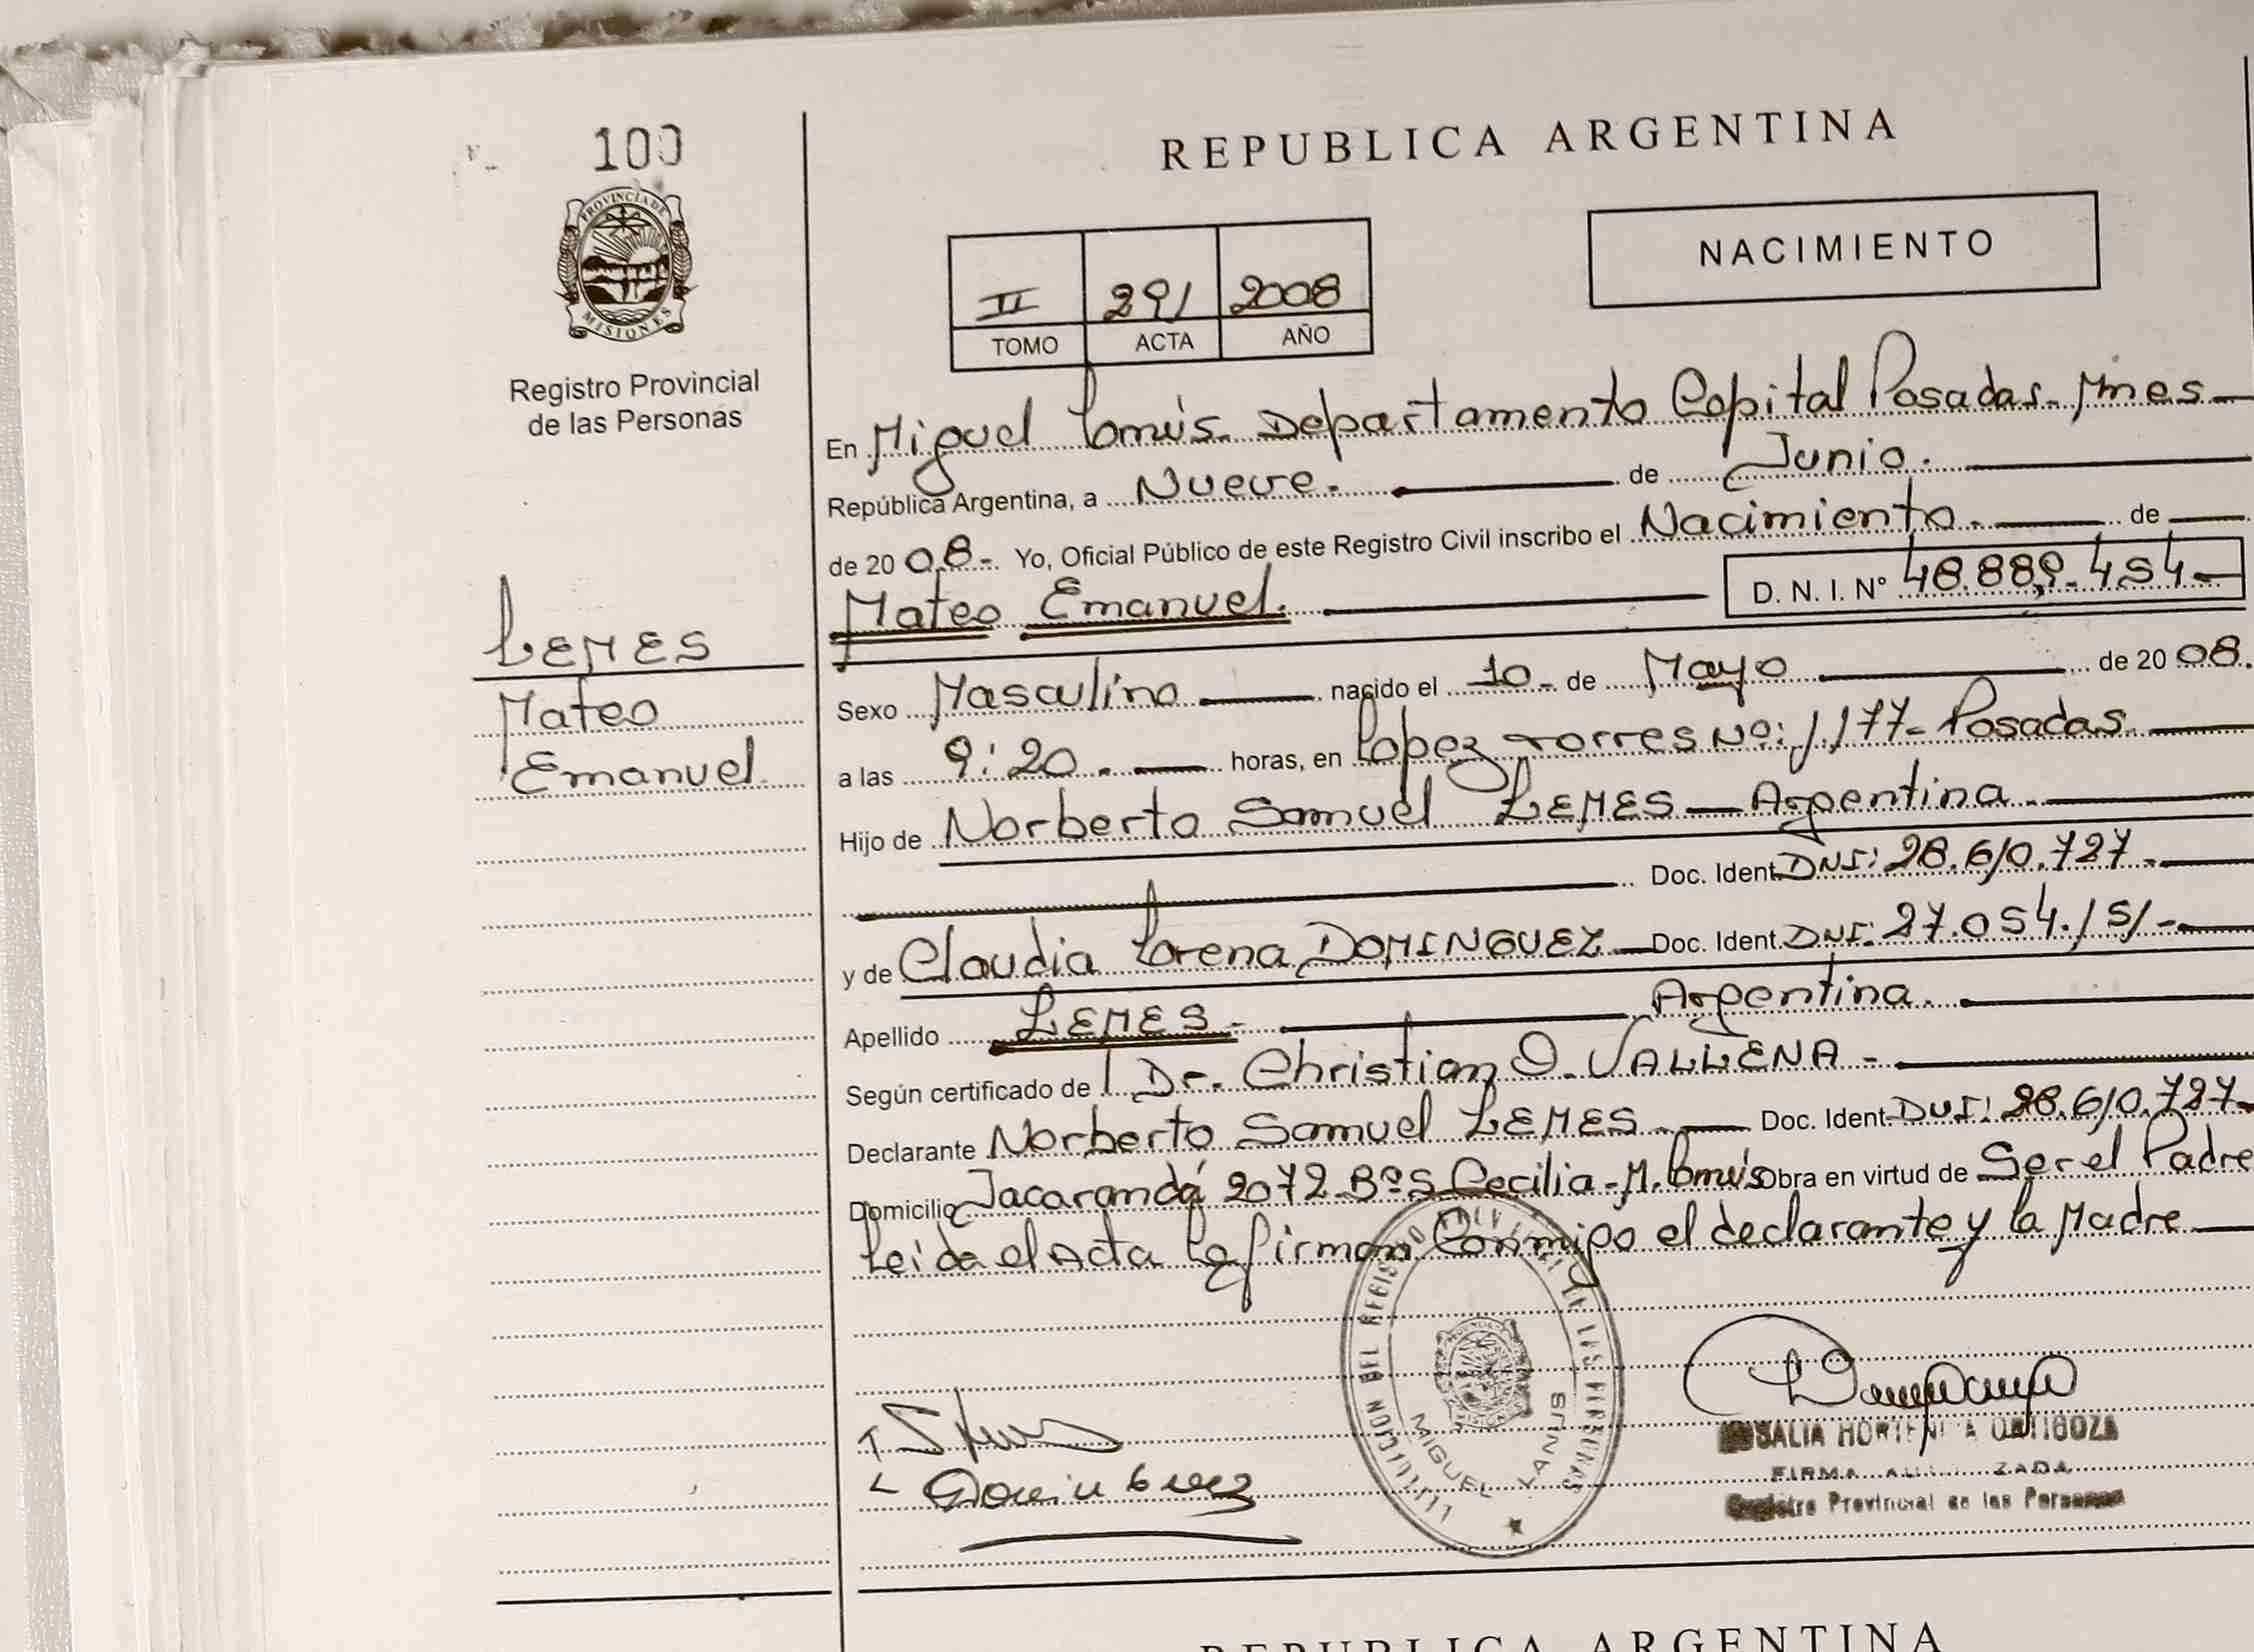 100
PROVINCIA DE
MISIONES
Registro Provincial
de las Personas
LEMES
Mateo
Emanuel
REPUBLICA ARGENTINA
NACIMIENTO
II 291 2008
TOMO ACTA AÑO
En Miguel Lanús. Departamento Capital Posadas- Mnes
República Argentina, a Nueve. de Junio.
de 2008- Yo, Oficial Público de este Registro Civil inscribo el Nacimiento. de
Mateo Emanuel. D. N. I. Nº 48.889.454
Sexo Masculino nacido el 10 de Mayo de 2008.
a las 9:20. horas, en Lopez Torres Nº: 1177- Posadas
Hijo de Norberto Samuel LEMES — Argentina
Doc. Ident. DNI: 28.610.727
y de Claudia Lorena DOMINGUEZ Doc. Ident. DNI: 27.054.151
Apellido LEMES- Argentina
Según certificado de Dr. Christian O. VALLENA
Declarante Norberto Samuel LEMES Doc. Ident. DNI: 28.610.727
Domicilio Jacarandá 2072 Bº S Cecilia- M. Lanús Obra en virtud de Ser el Padre
Leida el Acta la firman Conmigo el declarante y la Madre
MIGUEL LANUS
ROSALIA HORTENCIA ORTIGOZA
FIRMA AUTORIZADA
Registro Provincial de las Personas
REPUBLICA ARGENTINA